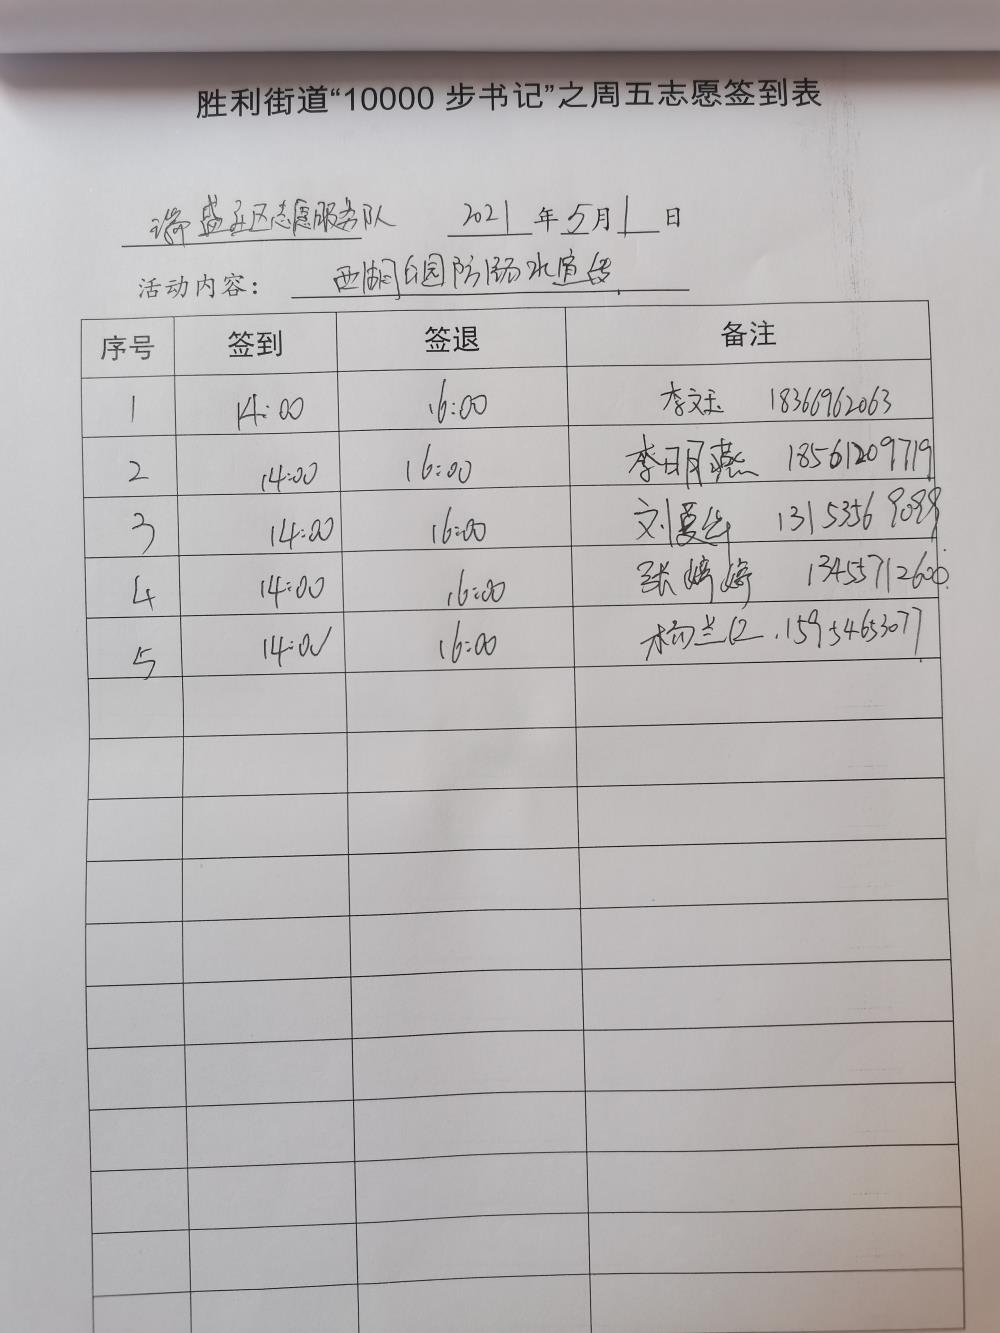 胜利街道“10000 步书记”之周五志愿签到表
瑞盛社区志愿服务队 2021 年 5 月 1 日
活动内容： 西湖公园防溺水宣传
序号 签到 签退 备注
1 14:00 16:00 李文玉 18366962063
2 14:00 16:00 李明燕 18561209719
3 14:00 16:00 刘曼华
4 14:00 16:00 张婷婷 13455712600
5 14:00 16:00 杨兰 15954653077